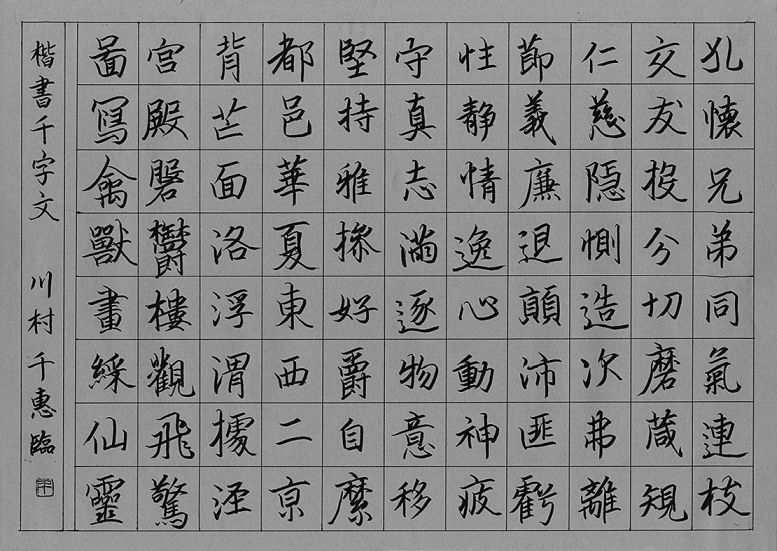 孔懐兄弟同氣連枝
交友投分切磨箴規
仁慈隠惻造次弗離
節義廉退顛沛匪虧
性静情逸心動神疲
守真志満逐物意移
堅持雅操好爵自縻
都邑華夏東西二京
背芒面洛浮渭據涇
宮殿磐鬱樓觀飛驚
圖寫禽獸畫綵仙靈
楷書千字文 川村千惠臨